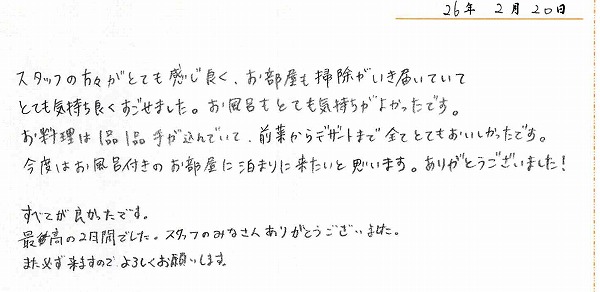 26年 2月 20日
スタッフの方々がとても感じ良く、お部屋も掃除がいき届いていて
とても気持ち良くすごせました。お風呂もとても気持ちがよかったです。
お料理は1品1品手が込んでいて、前菜からデザートまで全てとてもおいしかったです。
今度はお風呂付きのお部屋に泊まりに来たいと思います。ありがとうございました!
すべてが良かったです。
最高の2日間でした。スタッフのみなさんありがとうございました。
また必ず来ますのでよろしくお願いします。